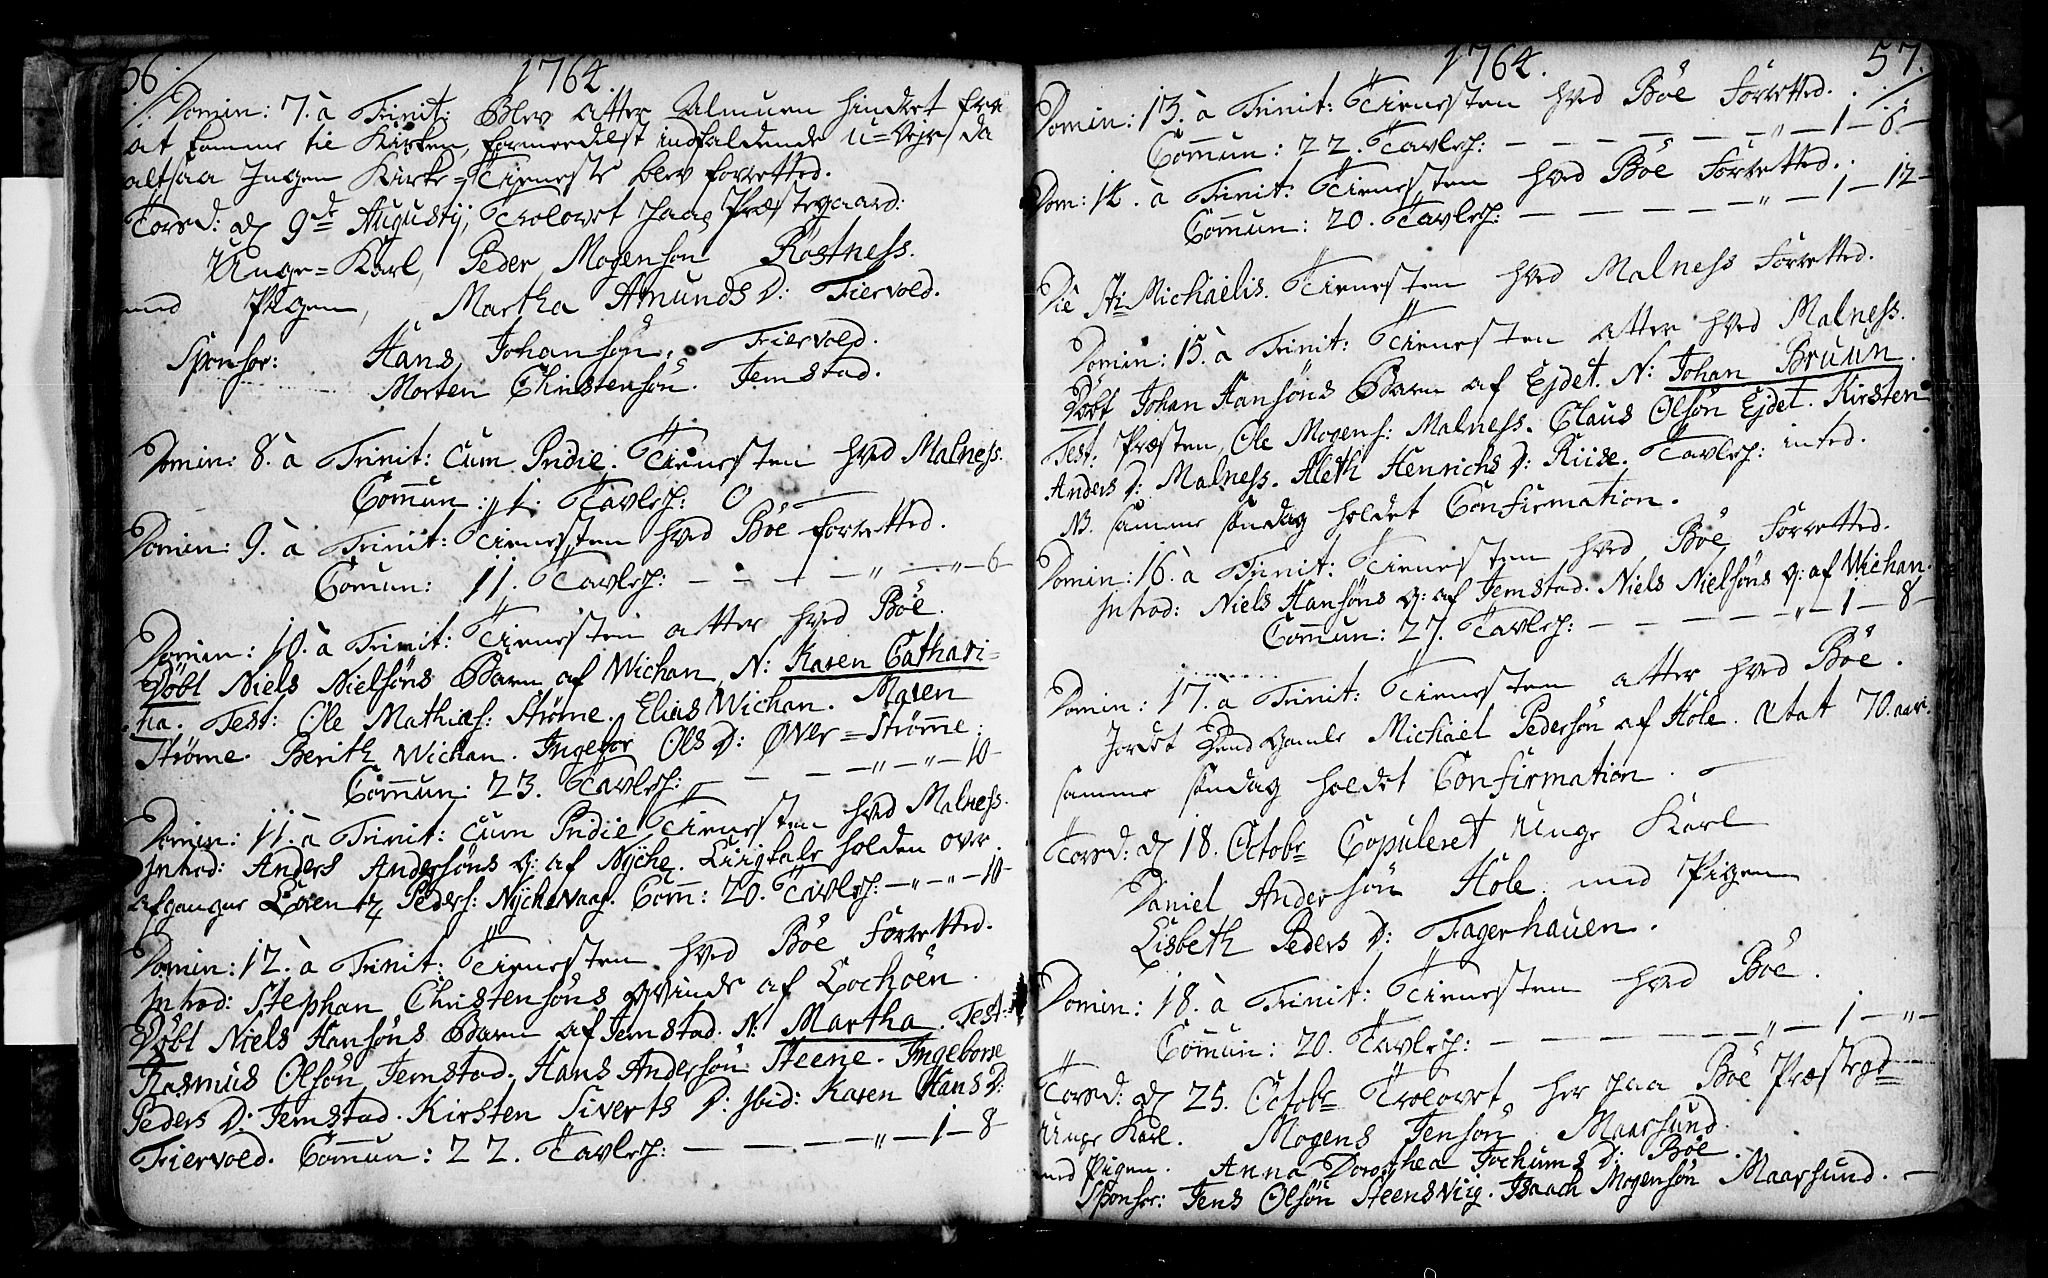 56.
1764.
Domin: 7. à Trinit: Blev atter Almuen hindret fra
at komme til Kirken, formedelst indfaldende U=Vejr, da
altsaa Ingen Kirke=Tieneste blev forretted.
Torsd: d 9de Augustij, Trolovet paa Præstegaard:
Unge=Karl, Peder Mogensøn Röstness.
med Pigen, Martha Amunds D: Fiervold.
Sponsor: Hans Johansøn. Fiervold.
Morten Christensøn. Jemstad.
Domin: 8. à Trinit: Cum Pridie. Tienesten hved Malness.
Com̄un: 4. Tavlep: 0
Domin: 9. à Trinit: Tienesten hved Böe forretted.
Com̄un: 11. Tavlep: — — — — " — " — 6 —
Domin: 10. à Trinit: Tienesten atter hved Böe.
Döbt Niels Nielsøns Barn af Wichan, N: Karen Cathari-
na. Test: Ole Mathias: Strøme. Elias Wichan. Maren
Strøme. Berith Wichan. Ingebor Ols D: Øver=Strøm̄e.
Com̄un: 23. Tavlep: — — — — " — " — 10 —
Domin: 11. à Trinit: Cum Pridie Tienesten hved Malness.
Introd: Anders Andersøns Q: af Nyche. Liigtale holden over
afgangne Lorentz Peders: Nyche Com̄: 20. Tavlep: — " — " — 10 —
Domin: 12. à Trinit: Tienesten hved Böe Forretted.
Introd: Stephan Christensøns Qvinde af Lochöen.
Döbt Niels Hansøns Barn af Jemstad. N: Martha. Test:
Rasmus Olsøn Jemstad. Hans Andersøn Steene. Ingeborre
Peders D: Jemstad. Kirsten Siverts D: Ibid: Karen Hans D:
Fiervold. Com̄un: 22. Tavlep: — — — — " — 1 — 8 —
1764.
57.
Domin: 13. à Trinit: Tienesten hved Böe Forretted.
Com̄un: 22. Tavlep: — — — — — " — 1 — 8 —
Dom: 14. à Trinit: Tienesten hved Böe Forretted.
Com̄un: 20. Tavlep: — — — — — " — 1 — 12 —
Die Sti Michaelis. Tienesten hved Malness Forretted.
Domin: 15. à Trinit: Tienesten atter hved Malness.
Döbt Johan Hansøns Barn af Ejdet. N: Johan Bruun.
Test: Præsten, Ole Mogens: Malness. Claus Olsøn Ejdet. Kirsten
Anders D: Malness. Aleth Henrichs D: Riise. Tavlep: inted.
NB. samme Søndag holdet Confirmation.
Domin: 16. à Trinit: Tienesten hved Böe Forretted.
Introd: Niels Hansøns Q: af Jemstad. Niels Nielsøns Q: af Wichan.
Com̄un: 27. Tavlep: — — — — — " — 1 — 8 —
Domin: 17. à Trinit: Tienesten atter hved Böe.
Jordet Gamle Michael Pedersøn af Hole. Ætat 70. aar.
samme Søndag holdet Confirmation.
Torsd: d 18. Octobr Copuleret Unge Karl
Daniel Andersøn Hole med Pigen
Lisbeth Peders D: Fagerhauen.
Domin: 18. à Trinit: Tienesten hved Böe.
Com̄un: 20. Tavlep: — — — — — " — 1 — " —
Torsd: d 25. Octobr Trolovet her paa Böe Præstegd
Unge Karl. Mogens Jensøn Maarsund.
med Pigen. Anna Dorothea Jochums D: Böe.
Sponsor: Jens Olsøn Steensviig. Isaach Mogensøn Maarsund. —